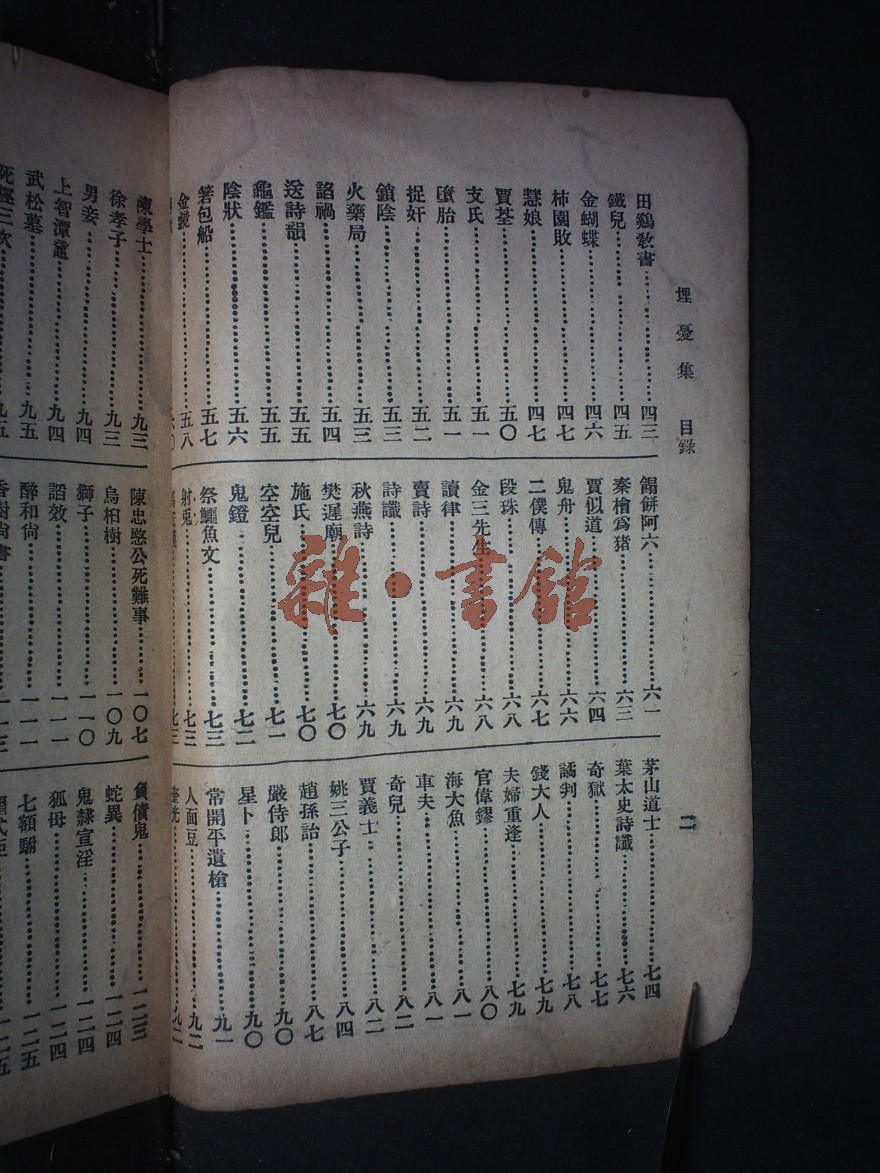 埋憂集 目錄 二
田鷄教書 四三
鐵兒 四五
金蝴蝶 四六
柿園敗 四七
慧娘 四七
賈荃 五〇
支氏 五一
墮胎 五一
捉奸 五二
鎖陰 五三
火藥局 五三
諂禍 五四
送詩韻 五五
龜鑑 五五
陰狀 五六
箬包船 五七
金鏡 五八
餳餅阿六 六一
秦檜爲猪 六三
賈似道 六四
鬼舟 六六
二僕傳 六七
段珠 六八
金三先生 六八
讀律 六九
賣詩 六九
詩讖 六九
秋燕詩 六九
樊遲廟 七〇
施氏 七〇
空空兒 七一
鬼鐙 七二
祭鱷魚文 七三
射鬼 七三
茅山道士 七四
葉太史詩讖 七六
奇獄 七七
譎判 七八
錢大人 七九
夫婦重逢 七九
官偉鏐 八〇
海大魚 八一
車夫 八一
奇兒 八二
賈義士 八二
姚三公子 八四
趙孫詒 八七
嚴侍郎 九〇
星卜 九〇
常開平遺槍 九一
人面豆 九二
陳學士 九三
徐孝子 九三
男妾 九四
上智潭黿 九四
武松墓 九五
死經三次 九五
陳忠愍公死難事 一〇七
烏桕樹 一〇九
獅子 一一〇
諂效 一一一
醉和尙 一一一
香樹尙書 一一三
負債鬼 一二三
蛇異 一二四
鬼隸宣淫 一二四
狐母 一二四
七額駙 一二五
雜·書館